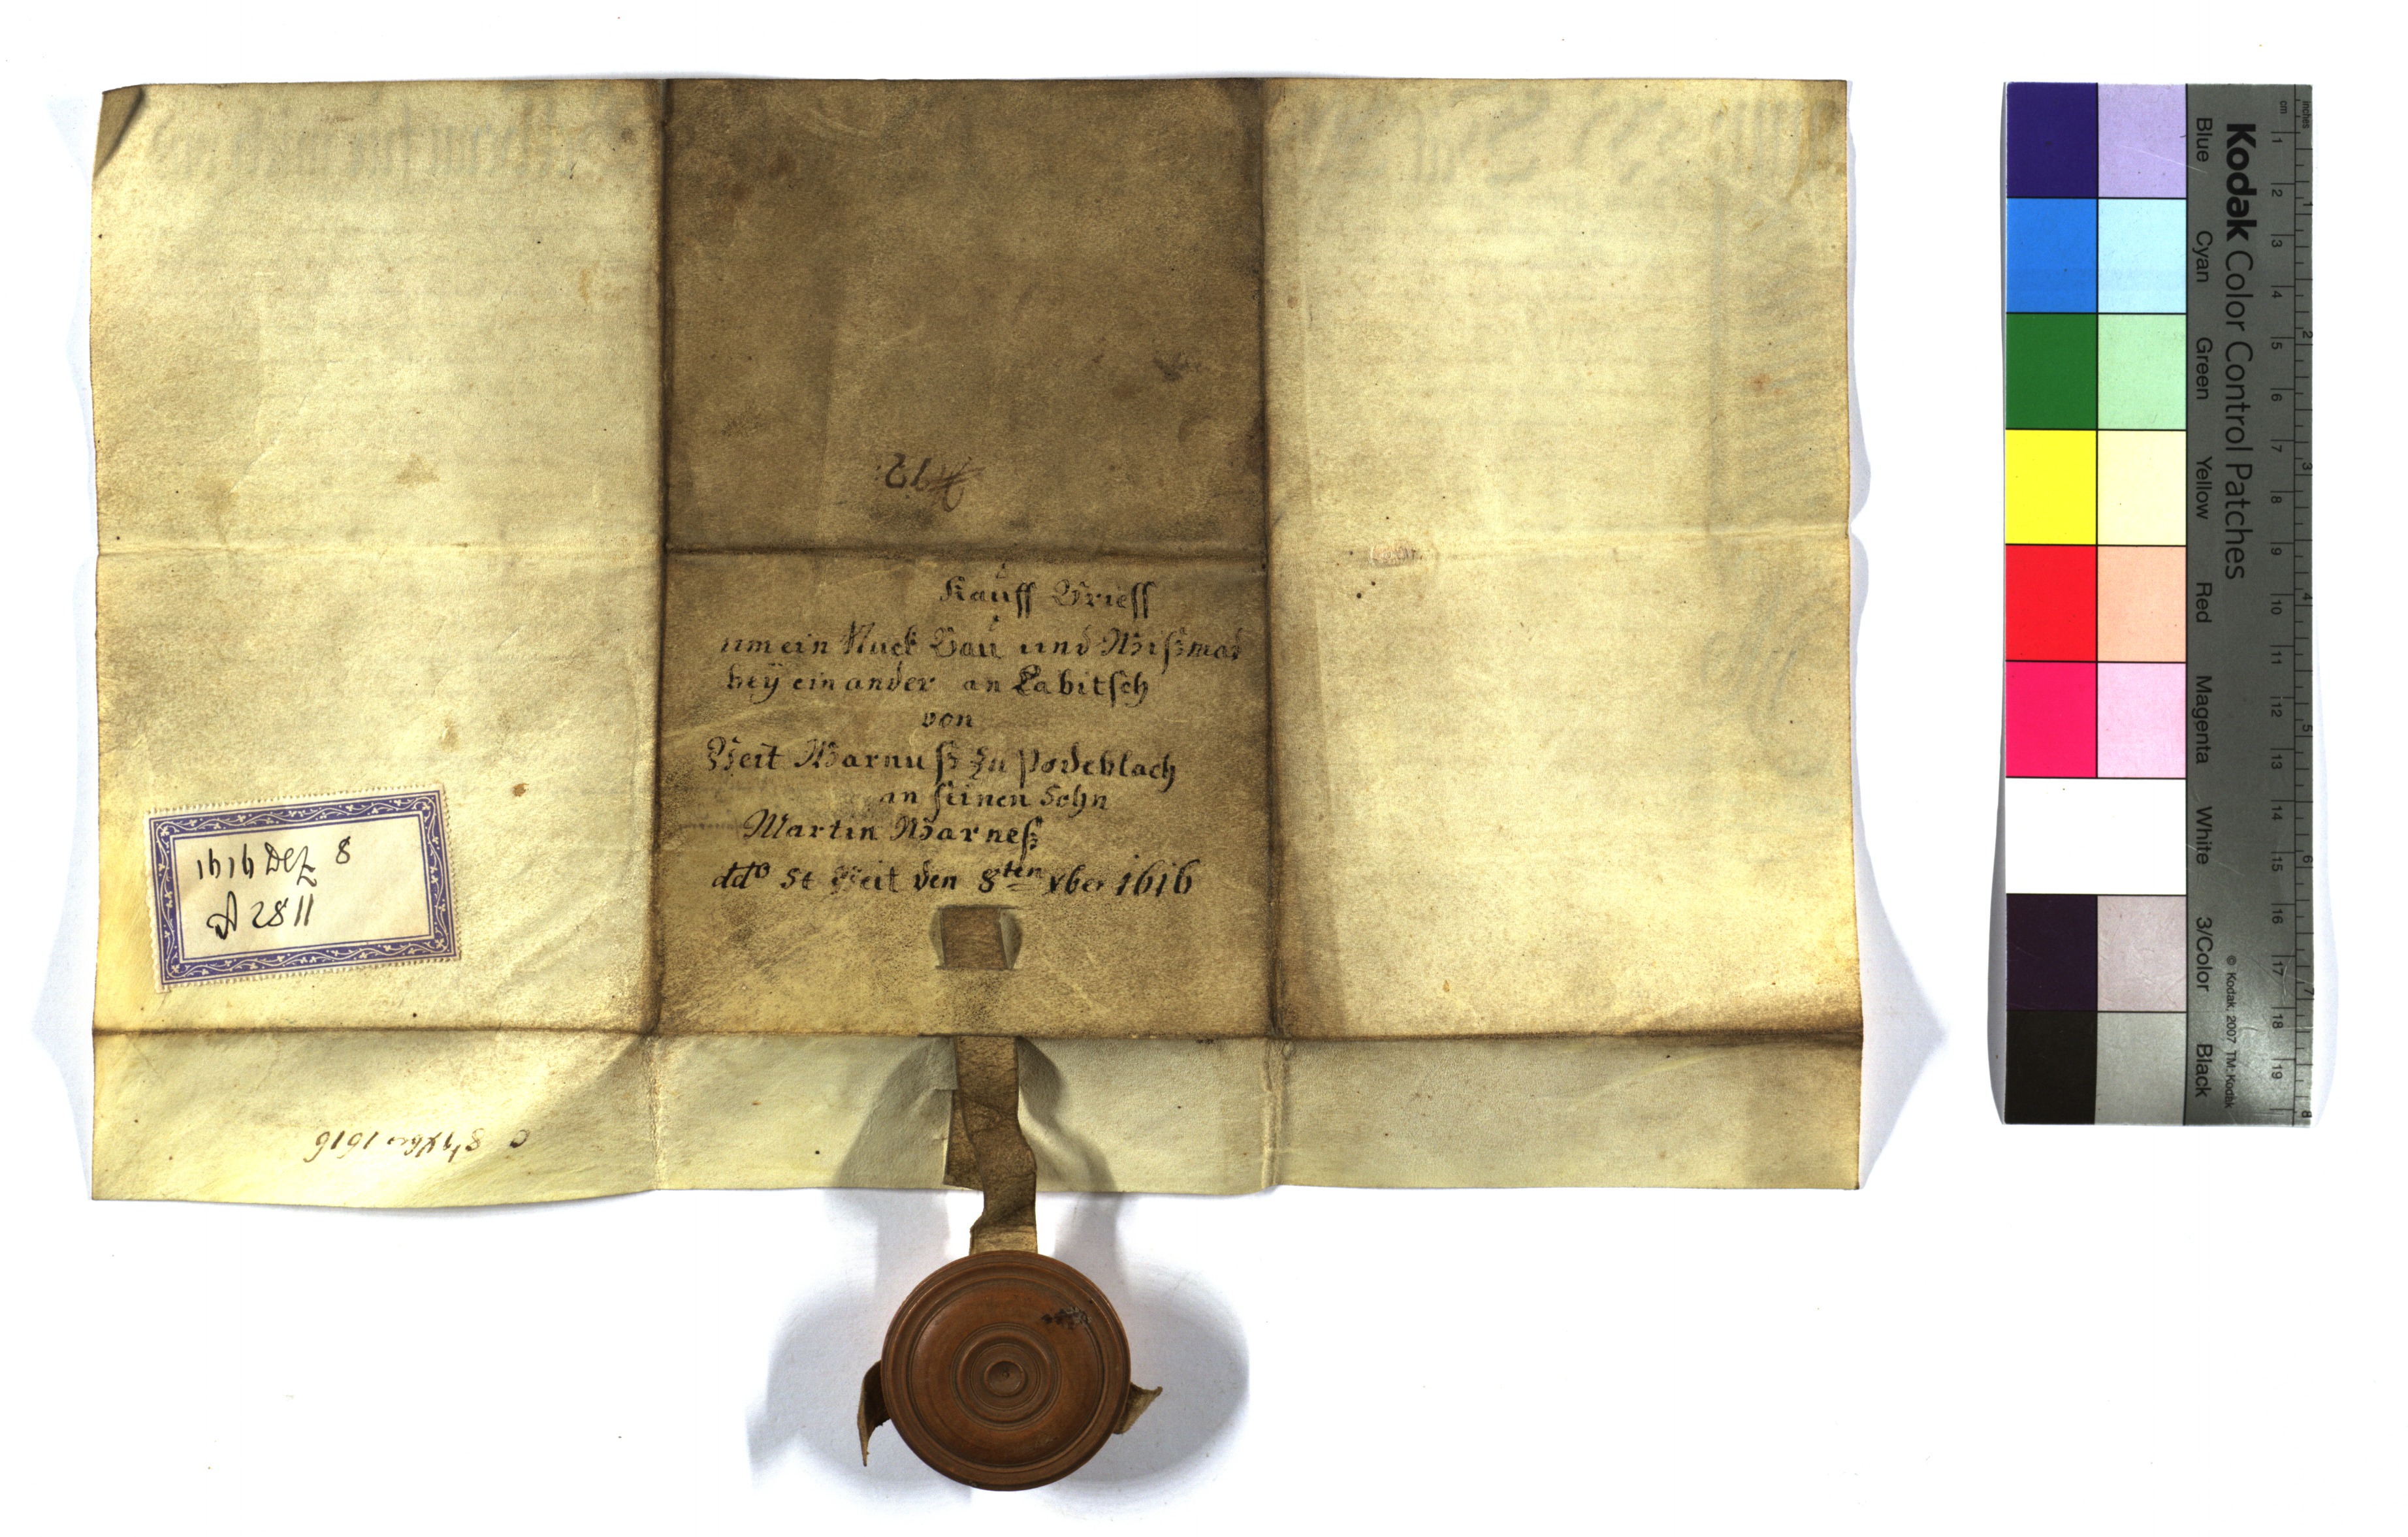 № 12.
Kauff Brieff
um ein stuck Bau und Wißmad
bey einander an Labitsch
von
Veit Warnuß zu Podeblach
an seinen Sohn
Martin Warneß
ddo St Veit den 8ten xber 1616
1616 Dez 8
A 2811
8 xber 1616
Kodak Color Control Patches
© Kodak, 2007 TM: Kodak
Blue Cyan Green Yellow Red Magenta White 3/Color Black
inches 1 2 3 4 5 6 7 8
cm 1 2 3 4 5 6 7 8 9 10 11 12 13 14 15 16 17 18 19